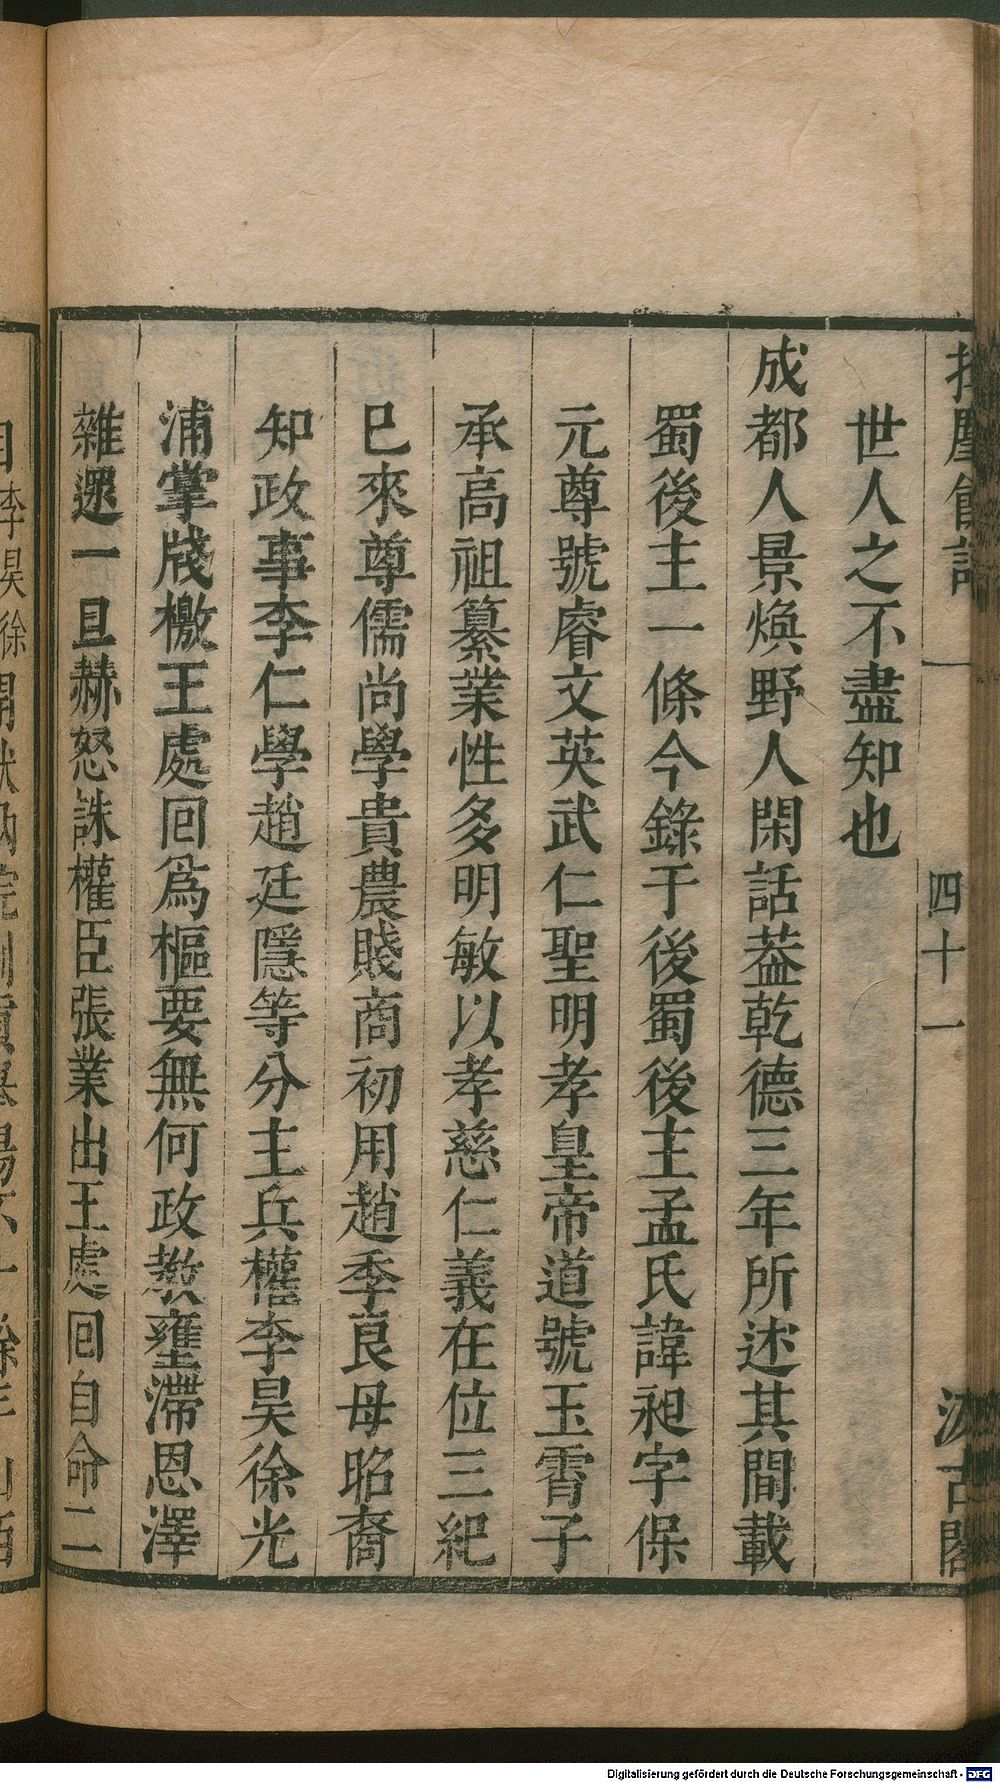 世人之不盡知也
成都人景煥野人閑話葢乾德三年所述其間載
蜀後主一條今錄于後蜀後主孟氏諱昶字保
元尊號睿文英武仁聖明孝皇帝道號玉霄子
承高祖纂業性多明敏以孝慈仁義在位三紀
巳來尊儒尚學貴農賤商初用趙季良母昭裔
知政事李仁學趙廷隱等分主兵權李昊徐光
浦掌牋檄王處回爲樞要無何政教壅滯恩澤
雜遝一旦赫怒誅權臣張業出王處回自命二
四十一
Digitalisierung gefördert durch die Deutsche Forschungsgemeinschaft - DFG